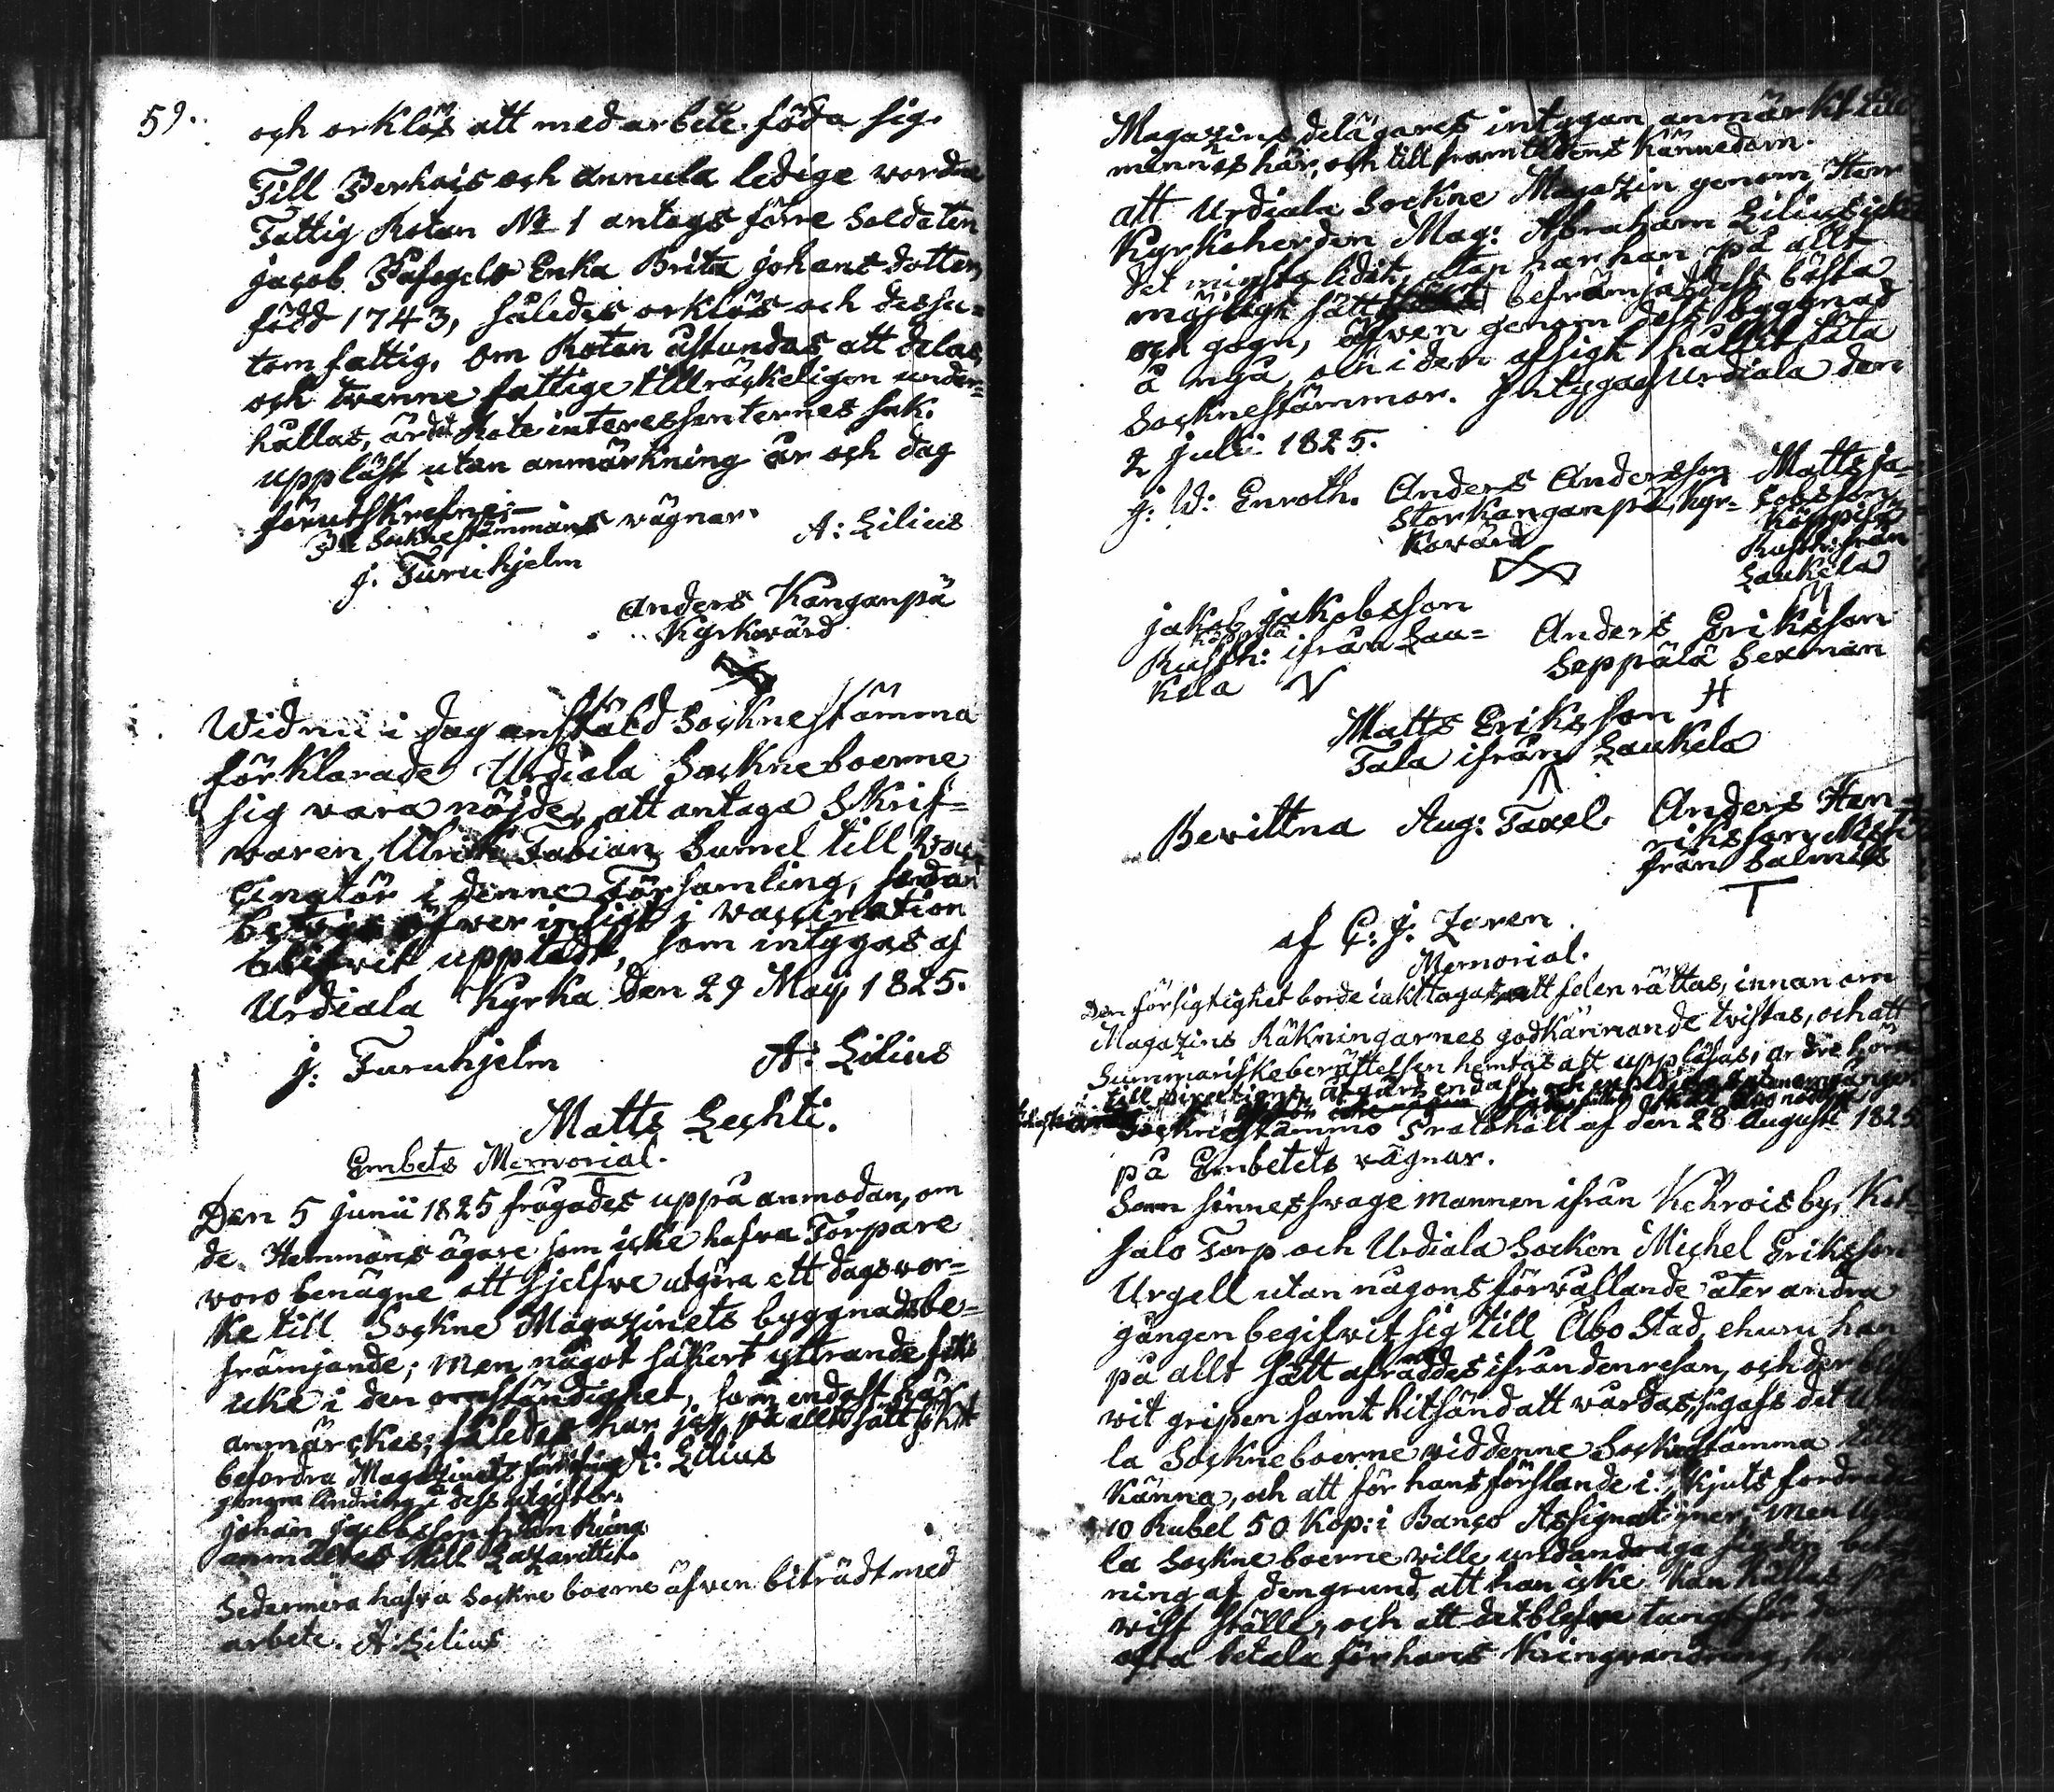 59.
och orklös att med arbete föda sig.
Till Perhois och Annula ledige wordne
Fattig Rotan No 1 antags förre Soldaten
Jacob Påfogels Enka Brita Johansdotter,
född 1743, således orklös och dessu=
tom fattig. Om Rotan åstundas att delas,
och twenne fattige tillräckeligen under=
hållas, är det Rote interessenternes sak.
uppläst utan anmärkning år och dag
förutskrefne;—
På Sockne stämmans wägnar.
A: Lilius
J. Furuhjelm
Anders Kanganpä
Kyrkowärd
Wid nu i dag anstäld Sockne stämma
förklarade Urdiala Sockneboerne
sig wara nöjde, att antaga Skrif=
waren Ulrik Fabian Sumel till Vac-
cinatör i denne Församling, sedan
öfwer insigt i vaccination
blifwit uppledt, som intygas af
Urdiala Kyrka den 29 Maji 1825.
J. Furuhjelm
A: Lilius
Matts Lechti.
Embets Memorial.
Den 5 Junii 1825 frågades uppå anmodan, om
de Hemmans ägare som icke hafva Torpare
voro benägne att sjelfve utgöra ett dagsver=
ke till Sockne Magazinets byggnads be=
främjande; men något säkert yttrande feks
icke i den omständighet, som endast här
anmärckes; således har jag på allt sätt sökt
befordra Magazinets A: Lilius
genom lindring i dess utgifter.
Johan Jacobsson från Runa
anmältes till Lazarettet.
Sedermera hafva Sockne boerne äfven biträdt med
arbete. A: Lilius
Magazins delägares intygan anmärkt till
minnes här, och till framtidens kännedom.
att Urdiala Sockne Magazin genom Herr
Kyrkoherden Mag: Abraham Lilius icke
det minsta lidit, utan har han på allt
möjligt sätt befrämjat dess bästa
och gagn, äfven genom dess byggnad
å nya, och i den afsigt hållit täta
Socknestämmor. Intygas Urdiala den
2 Julii 1825.
J: W: Enroth. Anders Andersson Matts Ja-
Storkanganpä, Kyr- cobsson
kowärd Köppilä
Rusth: från
Laukela
Jakob Jakobsson
Köppilä
Rusth: ifrån Lau=
kela
Anders Eriksson
Seppälä Sexman
Matts Eriksson
Tala ifrån Laukela
Bevittna Aug: Taxel. Anders Hen-
riksson
från Salmis
af C: J: Zaren.
Memorial.
Den försigtighet borde iakttagas, att felen rättas, innan om
Magazins Räkningarnes godkännande twistas, och att
Summariske berättelsen hemtas att uppläsas,
till Direction
Socknestämmo Protokoll af den 28 August 1825
på Embetets vägnar.
Som sinnes swage mannen ifrån Kehrois by, Ket-
salo Torp och Urdiala Socken Michel Eriksson
Urgell utan någons förvållande åter andra
gången begifvit sig till Åbo Stad, ehuru han
på allt sätt afråddes ifrån den resan, och der blif
vit gripen samt hitsänd att vårdas, gafs det Urdia
la Sockneboerne vid denne Sockenstämma till
känna, och att för hans förslande i skjuts fordrades
10 Rubel 50 Kop: i Banco Assignationer, men Urdia
la Sockneboerne wille undandraga sig den betal
ning af den grund, att han icke kan hållas på
wisst ställe, och att det blefve tungt för dem
ofta betala för hans kringvandring,